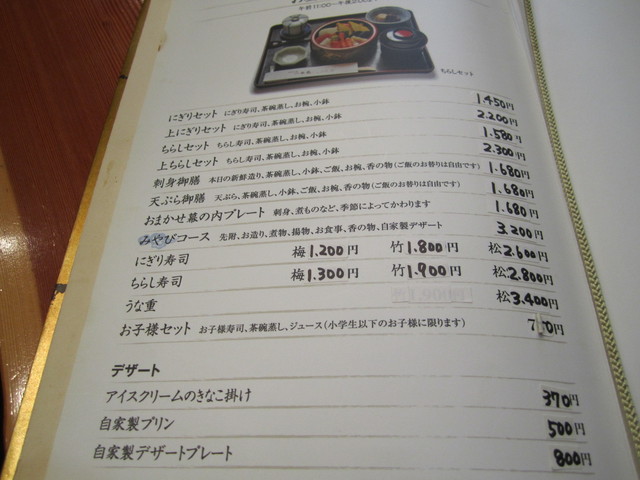 午前11:00〜午後2:00
ちらしセット
にぎりセット にぎり寿司、茶碗蒸し、お椀、小鉢 1.450円
上にぎりセット にぎり寿司、茶碗蒸し、お椀、小鉢 2.200円
ちらしセット ちらし寿司、茶碗蒸し、お椀、小鉢 1.580円
上ちらしセット ちらし寿司、茶碗蒸し、お椀、小鉢 2.300円
刺身御膳 本日の新鮮造り、茶碗蒸し、小鉢、ご飯、お椀、香の物(ご飯のお替りは自由です) 1.680円
天ぷら御膳 天ぷら、茶碗蒸し、小鉢、ご飯、お椀、香の物(ご飯のお替りは自由です) 1.680円
おまかせ幕の内プレート 刺身、煮ものなど、季節によってかわります 1.680円
みやびコース 先附、お造り、煮物、揚物、お食事、香の物、自家製デザート 3.200円
にぎり寿司 梅1.200円 竹1.800円 松2.600円
ちらし寿司 梅1.300円 竹1.900円 松2.800円
うな重 松3.400円
お子様セット お子様寿司、茶碗蒸し、ジュース(小学生以下のお子様に限ります) 円
デザート
アイスクリームのきなこ掛け 370円
自家製プリン 500円
自家製デザートプレート 800円